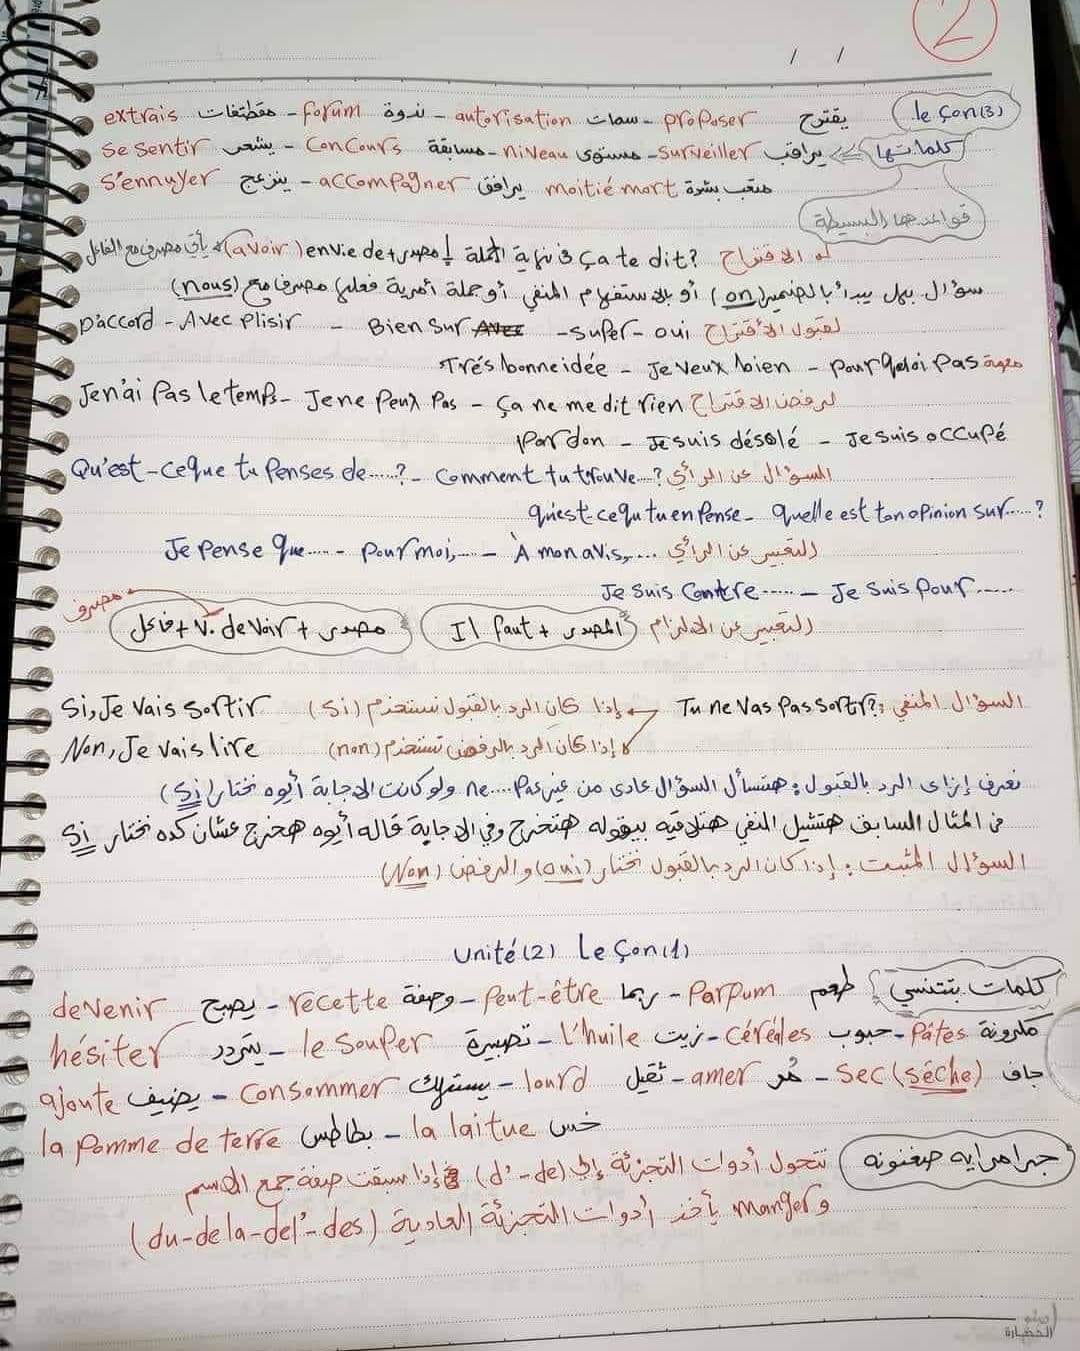 2
/ /
leçon(3) proposer يقترح - autorisation سمات - forum ندوة - extrais مقطتفات
كلماتها >> surveiller يراقب - niveau مستوى - concours مسابقة - se sentir يشعر
moitié mort متعب بشدة - accompagner يرافق - s'ennuyer ينزعج
قواعدها البسيطة
له الاقتراح Ça te dit? في نهاية الجملة | مصدر + envie de (avoir) يأتي مصرف مع الفاعل
سؤال بهل يبدأ بالضمير (on) أو بالاستفهام المنفي أو جملة أمرية فعلها مصرف مع (nous)
لقبول الأقتراح oui - super - Bien sur - Avec Plisir - D'accord
مهمة Pourquoi pas - Je veux bien - Trés bonne idée
لرفض الاقتراح Ça ne me dit rien - Je ne peux pas - Je n'ai pas le temps
Je suis occupé - Je suis désolé - Pardon
السؤال عن الرأي Comment tu trouve....? - Qu'est-ce que tu penses de.....?
Quelle est ton opinion sur.....? - qu'est-ce qu tu en Pense
التعبير عن الرأي À mon avis,.... - Pour moi,.... - Je pense que....
Je suis pour..... - Je suis contre.....
التعبير عن الالزام (المصدر + Il faut) (مصدر + V. devoir + فاعل) مصرف
السؤال المنفي: Tu ne vas pas sortir? إذا كان الرد بالقبول نستخدم (si) Si, Je vais sortir
إذا كان الرد بالرفض تستخدم (non) Non, Je vais lire
نعرف إزاى الرد بالقبول: هنسأل السؤال عادى من غير ne....pas ولو كانت الاجابة أيوه نختار (Si)
في المثال السابق هتشيل النفي هتلاقيه بيقوله هتخرج وفي الاجابة قاله أيوه هخرج عشان كده نختار si
السؤال المثبت: إذا كان الرد بالقبول نختار (oui) والرفض (Non)
Unité(2) Leçon(1)
كلمات بتتنسي Parpum طعم - peut-être ربما - recette وصفة - devenir يصبح
Pâtes مكرونة - céréales حبوب - l'huile زيت - le souper تصبيرة - hésiter يتردد
sec (séche) جاف - amer مُر - lourd ثقيل - consommer يستهلك - ajoute يضيف
la laitue خس - la pomme de terre بطاطس
جرامرايه صغنونه تتحول أدوات التجزئة إلي (d' - de) إذا سبقت صيغة جمع الاسم
و manger يأخذ أدوات التجزئة العادية (du-de la-del'-des)
الحضارة